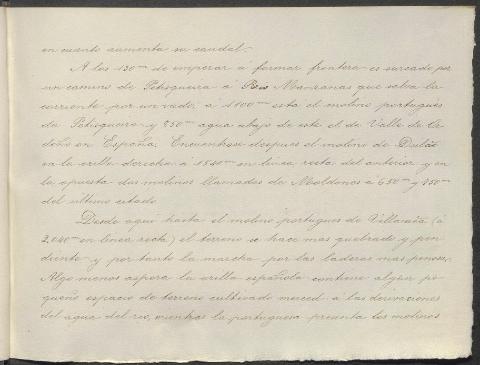 en cuanto aumenta su caudal.
A los 130 m de empezar á formar frontera es surcado por
un camino de Petisqueira á Rio Manzanas que salva la
corriente por un vado; á 1100 m está el molino portugués
de Petisqueira y 850 m agua abajo de este el de Valle de
en España. Encuentrase despues el molino de
en la orilla derecha á 1550 m en linea recta del anterior y en
la opuesta dos molinos llamados de Moldones á 650 m y 850 m
del último citado.
Desde aquí hasta el molino portugues de Villarinha (á
2,040 m en linea recta) el terreno se hace mas quebrado y pen
diente y por tanto la marcha por las laderas mas penosa.
Algo menos áspera la orilla española contiene algún pe
queño espacio de terreno cultivado merced á las derivaciones
del agua del rio, mientras la portuguesa presenta los molinos